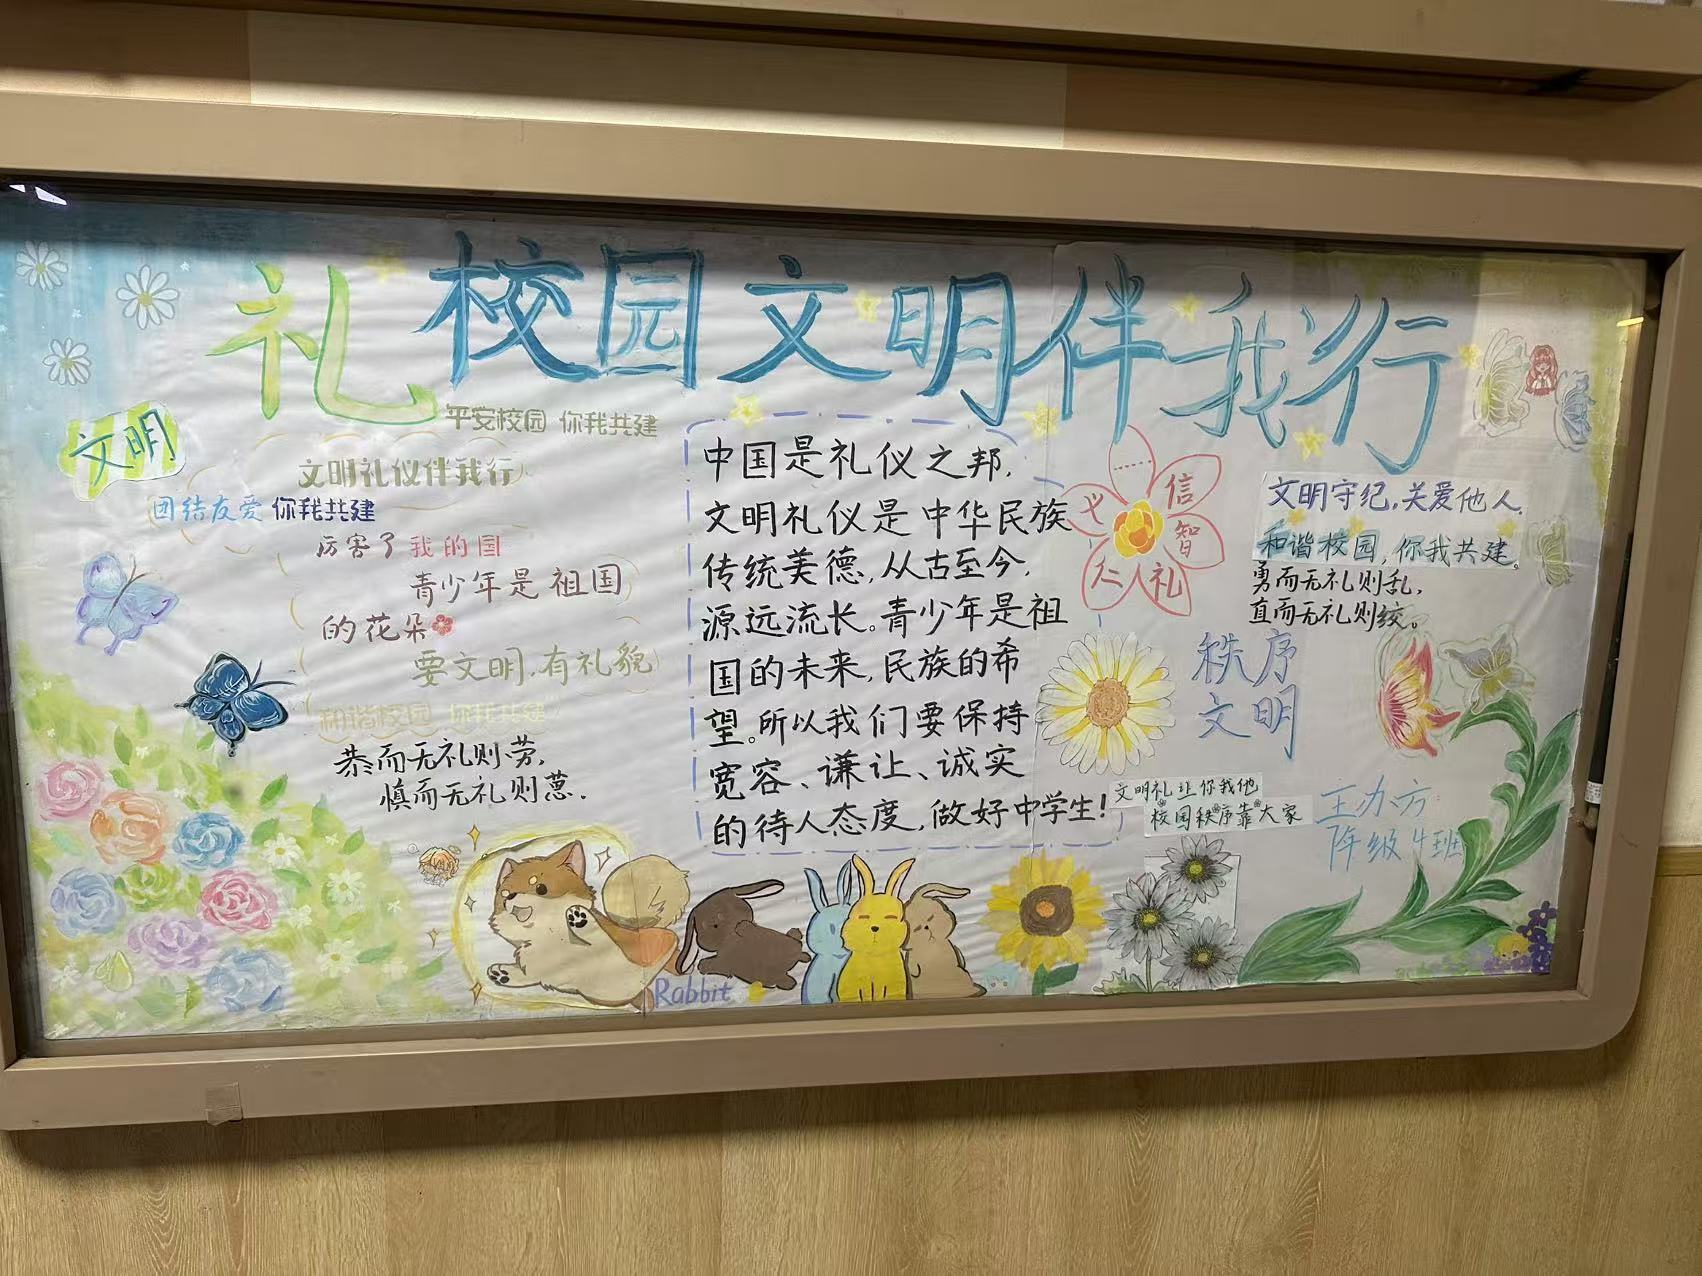 礼 校园文明伴我行
文明
平安校园 你我共建
文明礼仪伴我行
团结友爱 你我共建
厉害了我的国
青少年是祖国
的花朵
要文明，有礼貌
和谐校园 你我共建
恭而无礼则劳，
慎而无礼则葸.
中国是礼仪之邦，
文明礼仪是中华民族
传统美德，从古至今，
源远流长。青少年是祖
国的未来，民族的希
望。所以我们要保持
宽容、谦让、诚实
的待人态度，做好中学生！
义 信
智
仁 礼
文明守纪，关爱他人，
和谐校园，你我共建。
勇而无礼则乱，
直而无礼则绞。
秩序
文明
文明礼让你我他
校园秩序靠大家
主办方:
年级4班
Rabbit